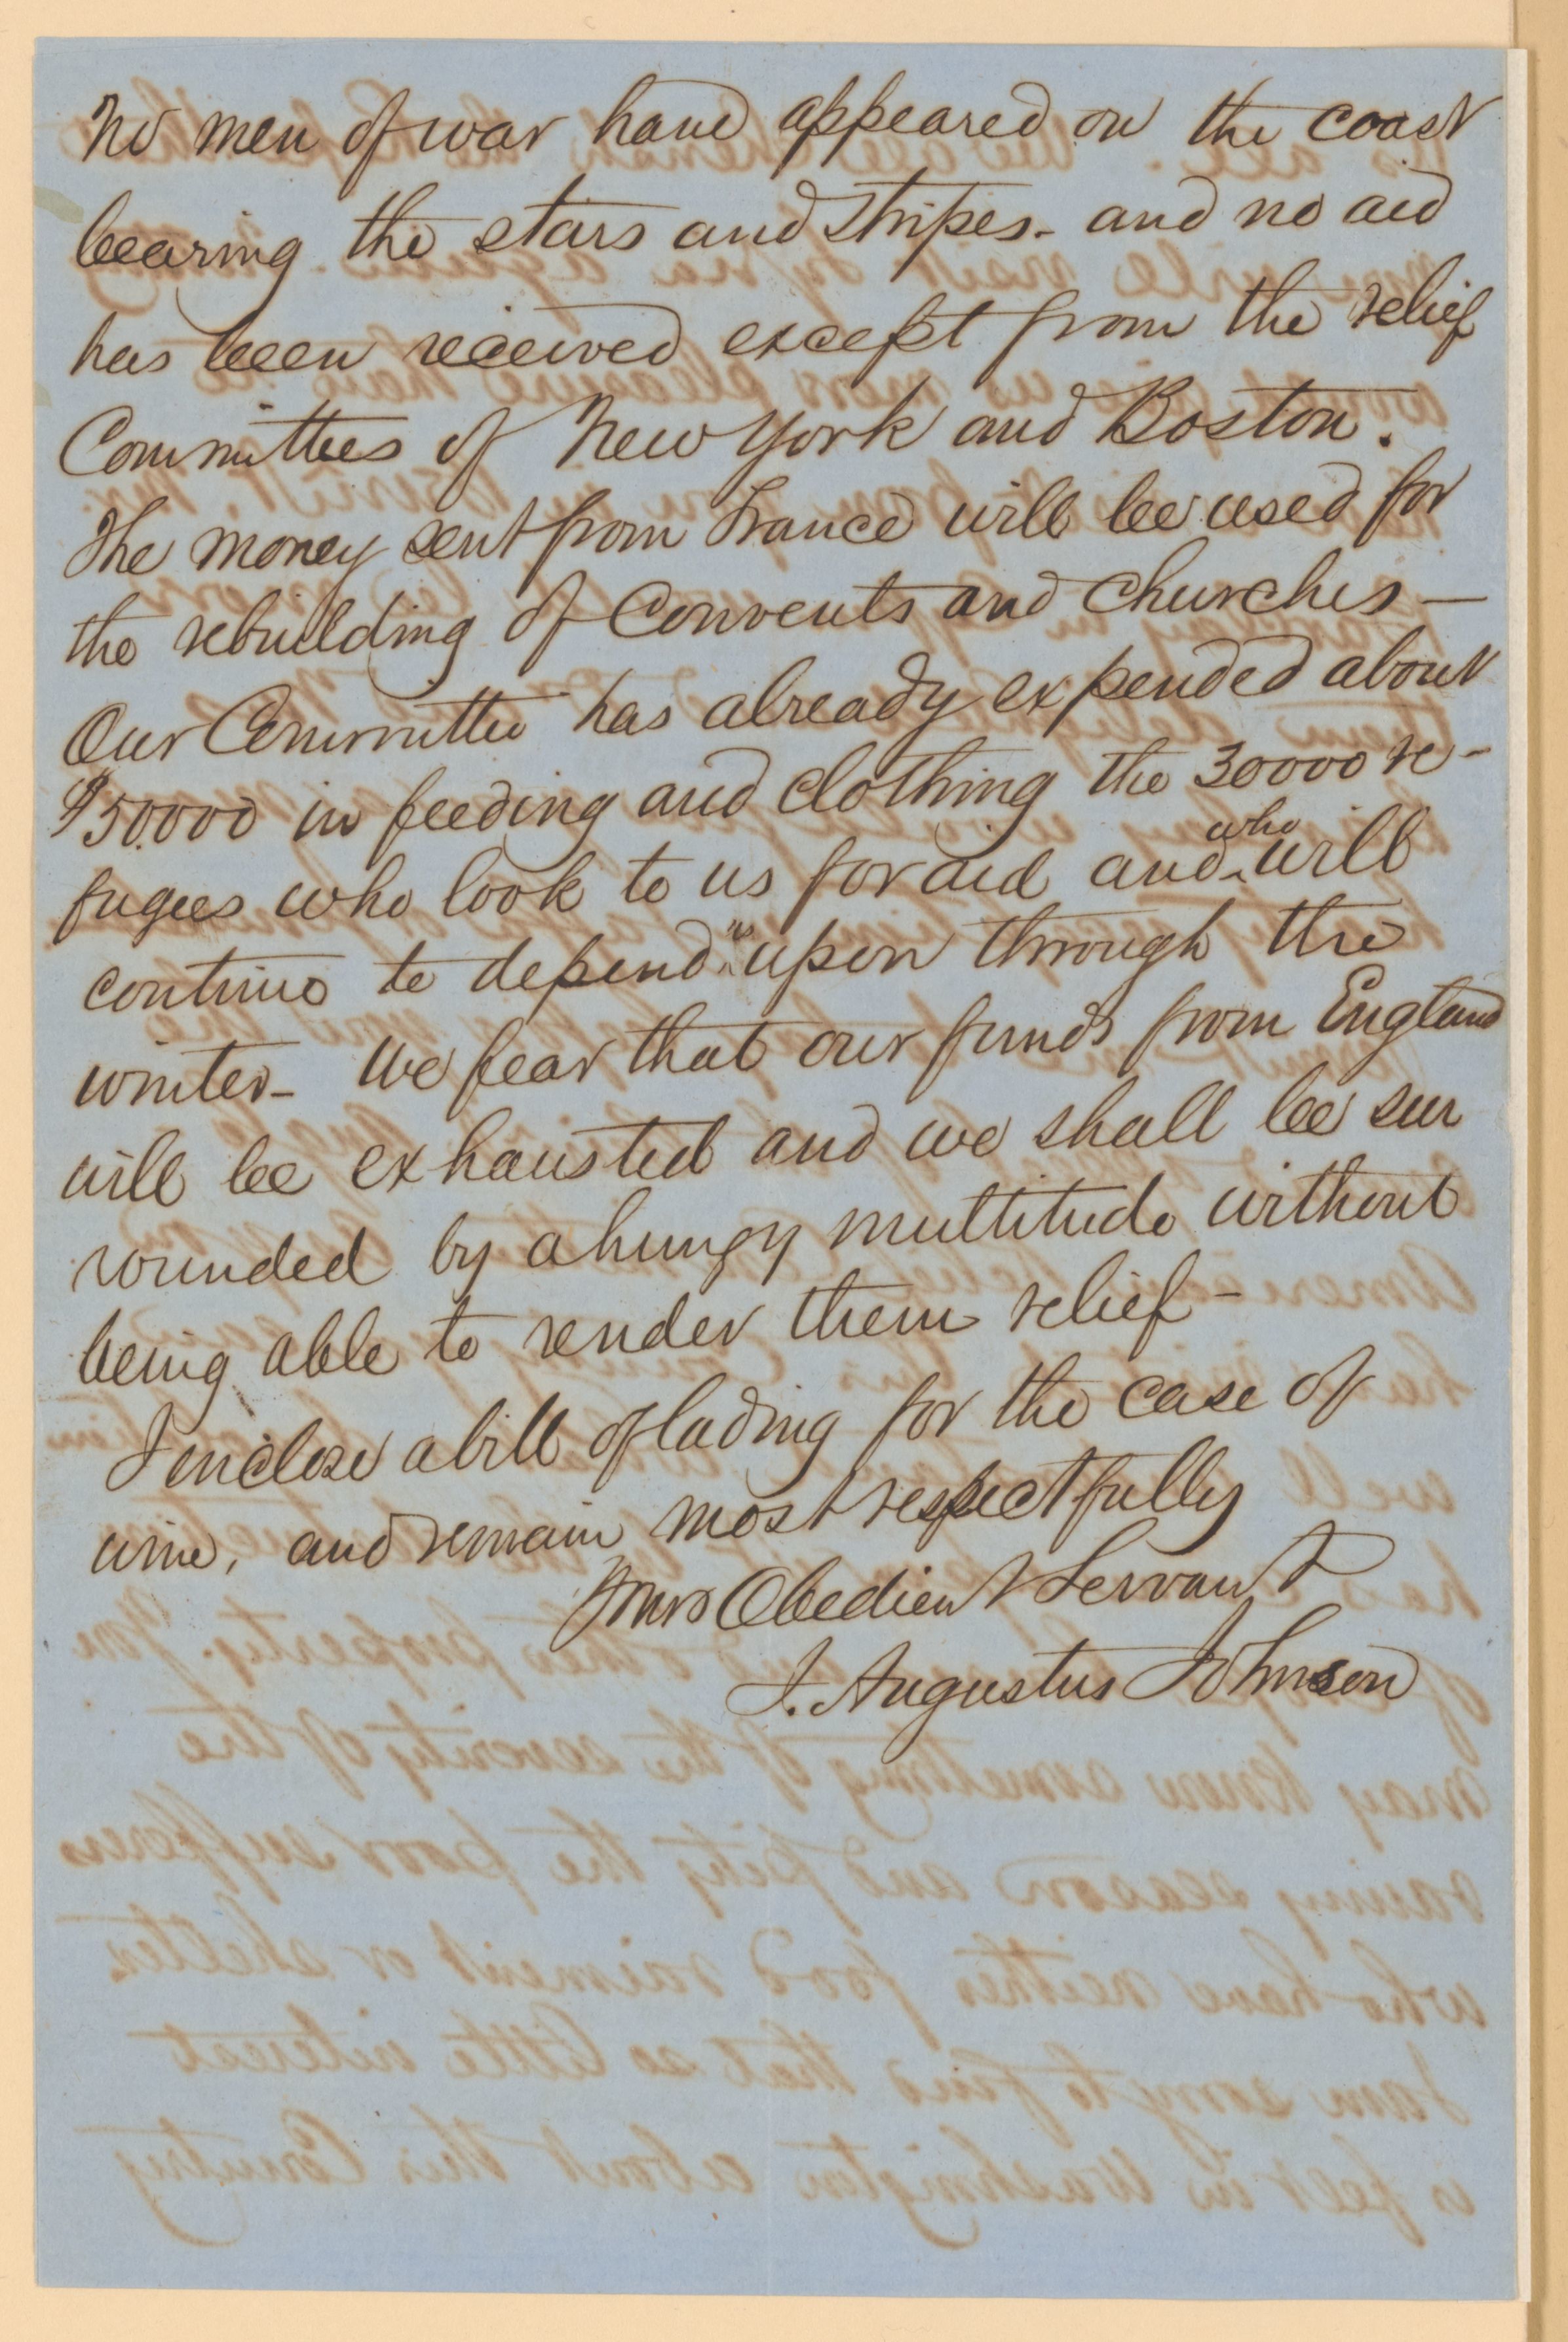 No men of war have appeared on the coast
bearing the stars and stripes - and no aid
has been received except from the relief
Committees of New York and Boston.
The money sent from France will be used for
the rebuilding of Convents and Churches —
Our Committee has already expended about
$50.000 in feeding and clothing the 30000 re-
fugees who look to us for aid and who will
continue to depend us upon through the
winter - We fear that our funds from England
will be exhausted and we shall be sur
rounded by a hungry multitude without
being able to render them relief -
I enclose a bill of lading for the case of
wine, and remain most respectfully
Your Obedient Servant
J. Augustus Johnson